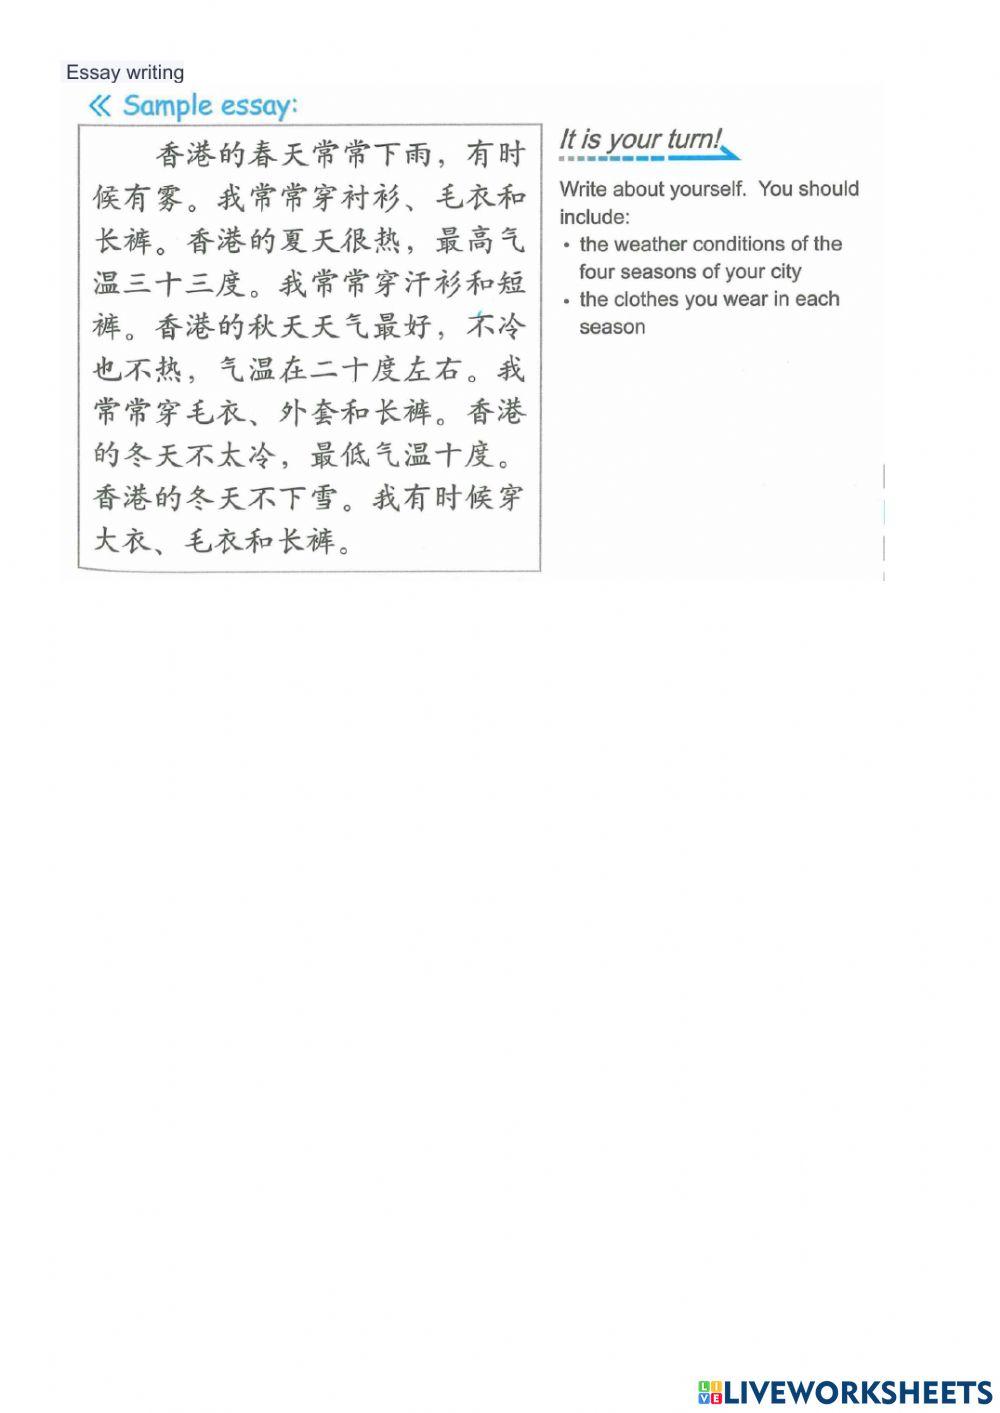 Essay writing
Sample essay:
香港的春天常常下雨，有时
候有雾。我常常穿衬衫、毛衣和
长裤。香港的夏天很热，最高气
温三十三度。我常常穿汗衫和短
裤。香港的秋天天气最好，不冷
也不热，气温在二十度左右。我
常常穿毛衣、外套和长裤。香港
的冬天不太冷，最低气温十度。
香港的冬天不下雪。我有时候穿
大衣、毛衣和长裤。
It is your turn!
Write about yourself. You should
include:
• the weather conditions of the
four seasons of your city
• the clothes you wear in each
season
LIVE LIVEWORKSHEETS